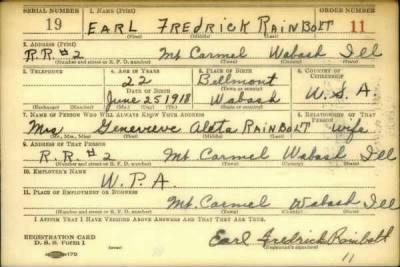 SERIAL NUMBER 1. NAME (Print) ORDER NUMBER
19 EARL FREDRICK RAINBOLT 11
(First) (Middle) (Last)
2. ADDRESS (Print)
R.R. #2 Mt Carmel Wabash Ill
(Number and street or R. F. D. number) (Town) (County) (State)
3. TELEPHONE 4. AGE IN YEARS 5. PLACE OF BIRTH 6. COUNTRY OF CITIZENSHIP
22 Bellmont
DATE OF BIRTH
June 25 1918 Wabash U.S.A.
(Exchange) (Number) (Mo.) (Day) (Yr.) (State or country)
7. NAME OF PERSON WHO WILL ALWAYS KNOW YOUR ADDRESS 8. RELATIONSHIP OF THAT PERSON
Mrs Genevieve Aleta RAINBOLT Wife
(Mr., Mrs., Miss) (First) (Middle) (Last)
9. ADDRESS OF THAT PERSON
R.R. #2 Mt. Carmel Wabash Ill
(Number and street or R. F. D. number) (Town) (County) (State)
10. EMPLOYER'S NAME
W.P.A.
11. PLACE OF EMPLOYMENT OR BUSINESS
Mt. Carmel Wabash Ill
(Number and street or R. F. D. number) (Town) (County) (State)
I AFFIRM THAT I HAVE VERIFIED ABOVE ANSWERS AND THAT THEY ARE TRUE.
REGISTRATION CARD
D. S. S. Form 1 Earl Fredrick Rainbolt
(Registrant's signature)
11